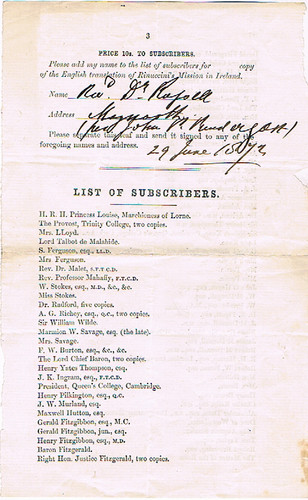 3
PRICE 10s. TO SUBSCRIBERS.
Please add my name to the list of subscribers for copy
of the English translation of Rinuccini's Mission in Ireland.
Name Revd Dr Russell
Address Maynooth
(per John P Prendergast)
Please separate this leaf and send it signed to any of the
foregoing names and address.
29 June 1872
LIST OF SUBSCRIBERS.
H. R. H. Princess Louise, Marchioness of Lorne.
The Provost, Trinity College, two copies.
Mrs. Lloyd.
Lord Talbot de Malahide.
S. Ferguson, esq., LL.D.
Mrs Ferguson.
Rev. Dr. Malet, S.F.T.C.D.
Rev. Professor Mahaffy, F.T.C.D.
W. Stokes, esq., M.D., &c., &c.
Miss Stokes.
Dr. Radford, five copies.
A. G. Richey, esq., Q.C., two copies.
Sir William Wilde.
Marmion W. Savage, esq. (the late).
Mrs. Savage.
F. W. Burton, esq., &c., &c.
The Lord Chief Baron, two copies.
Henry Yates Thompson, esq.
J. K. Ingram, esq., F.T.C.D.
President, Queen's College, Cambridge.
Henry Pilkington, esq., Q.C.
J. W. Murland, esq.
Maxwell Hutton, esq.
Gerald Fitzgibbon, esq., M.C.
Gerald Fitzgibbon, jun., esq.
Henry Fitzgibbon, esq., M.D.
Baron Fitzgerald.
Right Hon. Justice Fitzgerald, two copies.